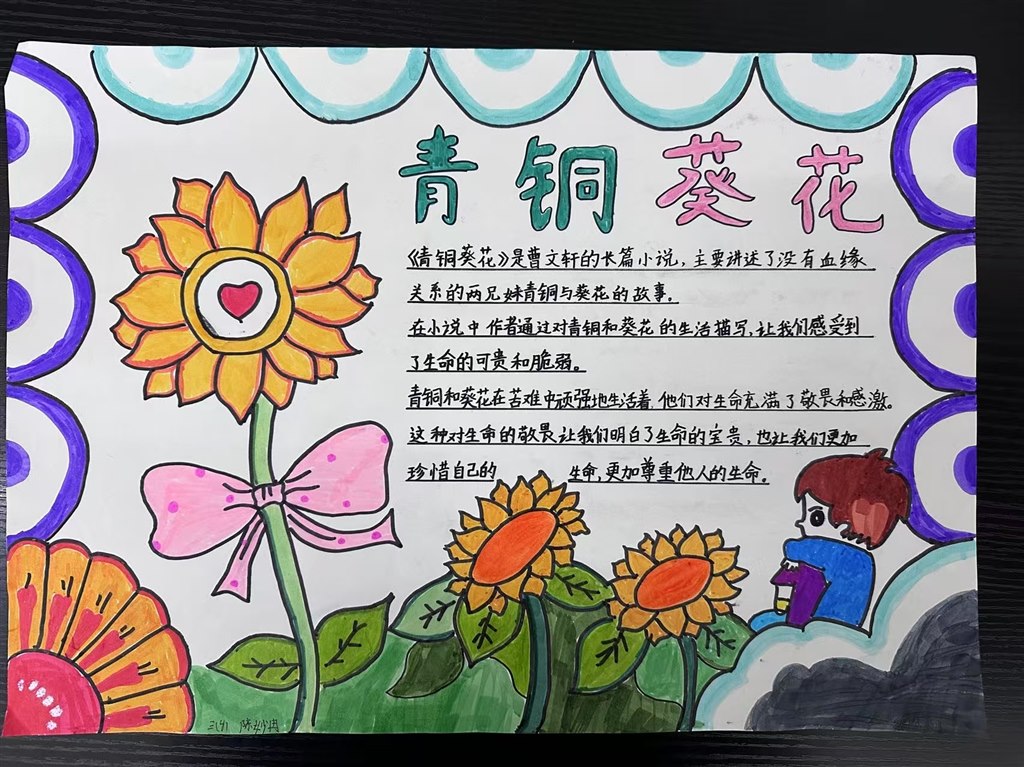 青铜葵花
《青铜葵花》是曹文轩的长篇小说，主要讲述了没有血缘
关系的两兄妹青铜与葵花的故事。
在小说中作者通过对青铜和葵花的生活描写，让我们感受到
了生命的可贵和脆弱。
青铜和葵花在苦难中顽强地生活着，他们对生命充满了敬畏和感激。
这种对生命的敬畏让我们明白了生命的宝贵，也让我们更加
珍惜自己的 生命，更加尊重他人的生命。